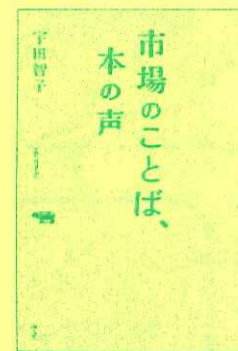 市場のことば、
本の声
宇田智子